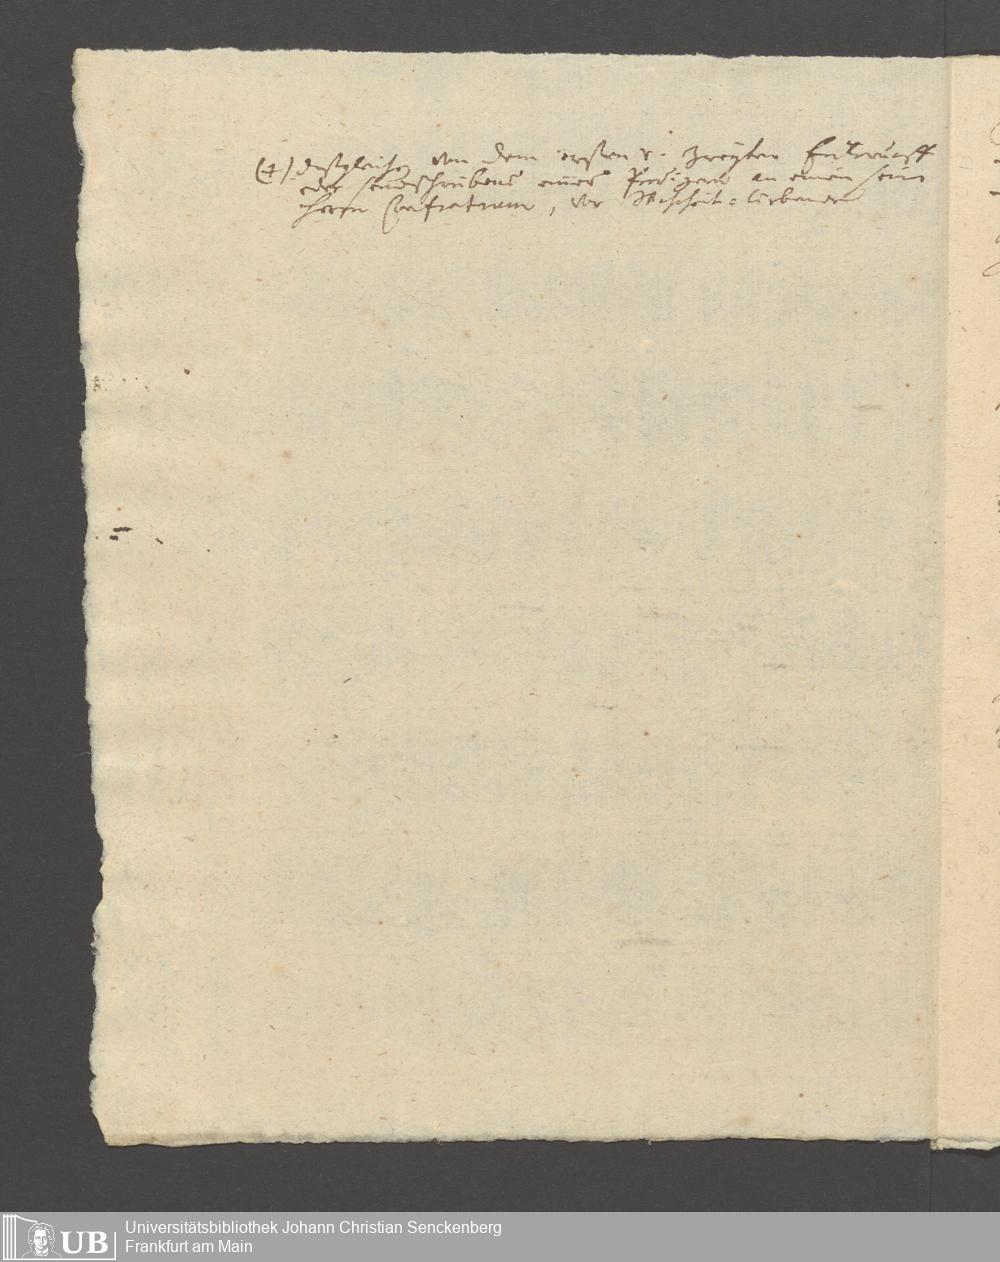 (4) desgleichen von dem ersten u. zweyten Entwurff
des Sendschreibens eines Predigers an einen sein
Herrn Confratrum, der
UB
Universitätsbibliothek Johann Christian Senckenberg
Frankfurt am Main